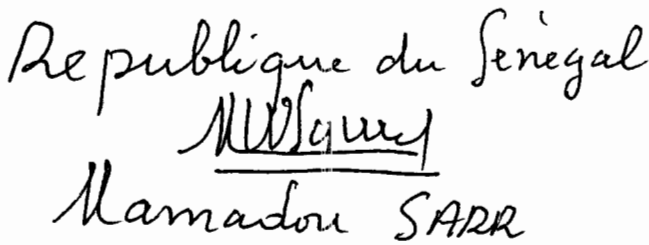 Republique du Sénégal
Mamadou SARR